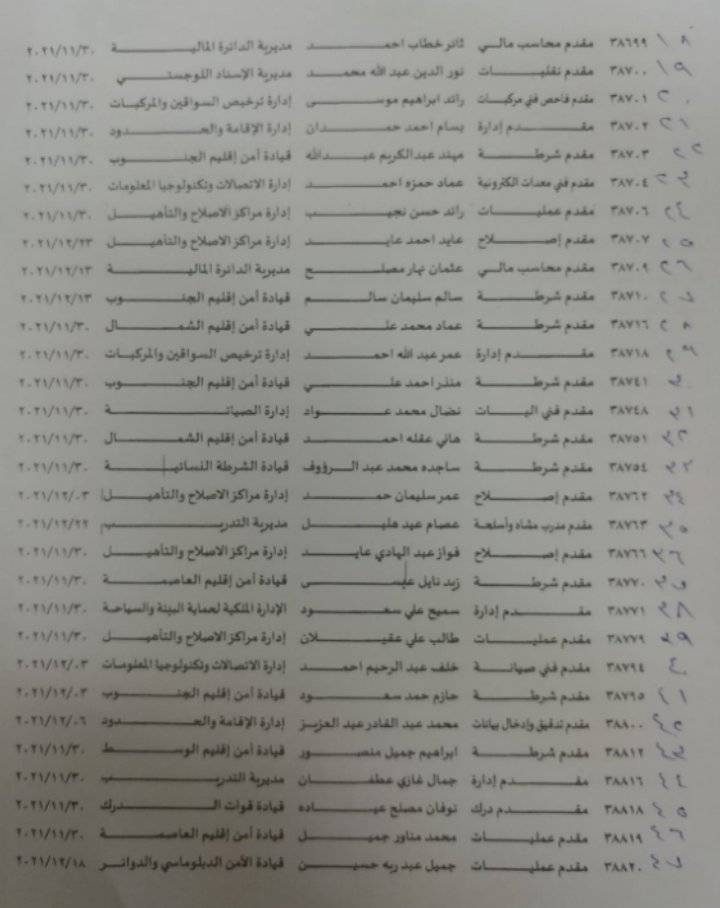 ١٨ ٣٨٦٩٩ مقدم محاسب مالي ثائر خطاب احمد مديرية الدائرة المالية ٢٠٢١/١١/٣٠
١٩ ٣٨٧٠٠ مقدم نقليات نور الدين عبد الله محمد مديرية الإسناد اللوجستي ٢٠٢١/١١/٣٠
٢٠ ٣٨٧٠١ مقدم فاحص فني مركبات رائد ابراهيم موسى إدارة ترخيص السواقين والمركبات ٢٠٢١/١١/٣٠
٢١ ٣٨٧٠٢ مقدم إدارة بسام احمد حمدان إدارة الإقامة والحدود ٢٠٢١/١١/٣٠
٢٢ ٣٨٧٠٣ مقدم شرطة مهند عبدالكريم عبدالله قيادة أمن إقليم الجنوب ٢٠٢١/١١/٣٠
٢٣ ٣٨٧٠٤ مقدم فني معدات الكترونية عماد حمزه احمد إدارة الاتصالات وتكنولوجيا المعلومات ٢٠٢١/١١/٣٠
٢٤ ٣٨٧٠٦ مقدم عمليات رائد حسن نجيب إدارة مراكز الاصلاح والتأهيل ٢٠٢١/١١/٣٠
٢٥ ٣٨٧٠٧ مقدم إصلاح عايد احمد عايد إدارة مراكز الاصلاح والتأهيل ٢٠٢١/١٢/٢٣
٢٦ ٣٨٧٠٩ مقدم محاسب مالي عثمان نهار مصلح مديرية الدائرة المالية ٢٠٢١/١٢/١٣
٢٧ ٣٨٧١٠ مقدم شرطة سالم سليمان سالم قيادة أمن إقليم الجنوب ٢٠٢١/١٢/١٣
٢٨ ٣٨٧١٦ مقدم شرطة عماد محمد علي قيادة أمن إقليم الشمال ٢٠٢١/١١/٣٠
٢٩ ٣٨٧١٨ مقدم إدارة عمر عبد الله احمد إدارة ترخيص السواقين والمركبات ٢٠٢١/١١/٣٠
٣٠ ٣٨٧٤١ مقدم شرطة منذر احمد علي قيادة أمن إقليم الجنوب ٢٠٢١/١١/٣٠
٣١ ٣٨٧٤٨ مقدم فني اليات نضال محمد عواد إدارة الصيانة ٢٠٢١/١١/٣٠
٣٢ ٣٨٧٥١ مقدم شرطة هاني عقله احمد قيادة أمن إقليم الشمال ٢٠٢١/١١/٣٠
٣٣ ٣٨٧٥٤ مقدم شرطة ساجده محمد عبد الرؤوف قيادة الشرطة النسائية ٢٠٢١/١١/٣٠
٣٤ ٣٨٧٦٢ مقدم إصلاح عمر سليمان حمد إدارة مراكز الاصلاح والتأهيل ٢٠٢١/١٢/٠٣
٣٥ ٣٨٧٦٣ مقدم مدرب مشاه وأسلحة عصام عيد هليل مديرية التدريب ٢٠٢١/١٢/٢٢
٣٦ ٣٨٧٦٦ مقدم إصلاح فواز عبد الهادي عايد إدارة مراكز الاصلاح والتأهيل ٢٠٢١/١١/٣٠
٣٧ ٣٨٧٧٠ مقدم شرطة زيد نايل عيسى قيادة أمن إقليم العاصمة ٢٠٢١/١١/٣٠
٣٨ ٣٨٧٧١ مقدم إدارة سميح علي سعود الإدارة الملكية لحماية البيئة والسياحة ٢٠٢١/١١/٣٠
٣٩ ٣٨٧٧٩ مقدم عمليات طالب علي عقيلان إدارة مراكز الاصلاح والتأهيل ٢٠٢١/١١/٣٠
٤٠ ٣٨٧٩٤ مقدم فني صيانة خلف عبد الرحيم احمد إدارة الاتصالات وتكنولوجيا المعلومات ٢٠٢١/١٢/٠٣
٤١ ٣٨٧٩٥ مقدم شرطة حازم حمد سعود قيادة أمن إقليم الجنوب ٢٠٢١/١٢/٠٣
٤٢ ٣٨٨٠٠ مقدم تدقيق وإدخال بيانات محمد عبد القادر عبد العزيز إدارة الإقامة والحدود ٢٠٢١/١٢/٠٦
٤٣ ٣٨٨١٢ مقدم شرطة ابراهيم جميل منصور قيادة أمن إقليم الوسط ٢٠٢١/١١/٣٠
٤٤ ٣٨٨١٦ مقدم إدارة جمال غازي عطفان مديرية التدريب ٢٠٢١/١١/٣٠
٤٥ ٣٨٨١٨ مقدم درك نوفان مصلح عياده قيادة قوات الدرك ٢٠٢١/١١/٣٠
٤٦ ٣٨٨١٩ مقدم عمليات محمد مناور جميل قيادة أمن إقليم العاصمة ٢٠٢١/١١/٣٠
٤٧ ٣٨٨٢٠ مقدم عمليات جميل عبد ربه حسين قيادة الأمن الدبلوماسي والدوائر ٢٠٢١/١٢/١٨